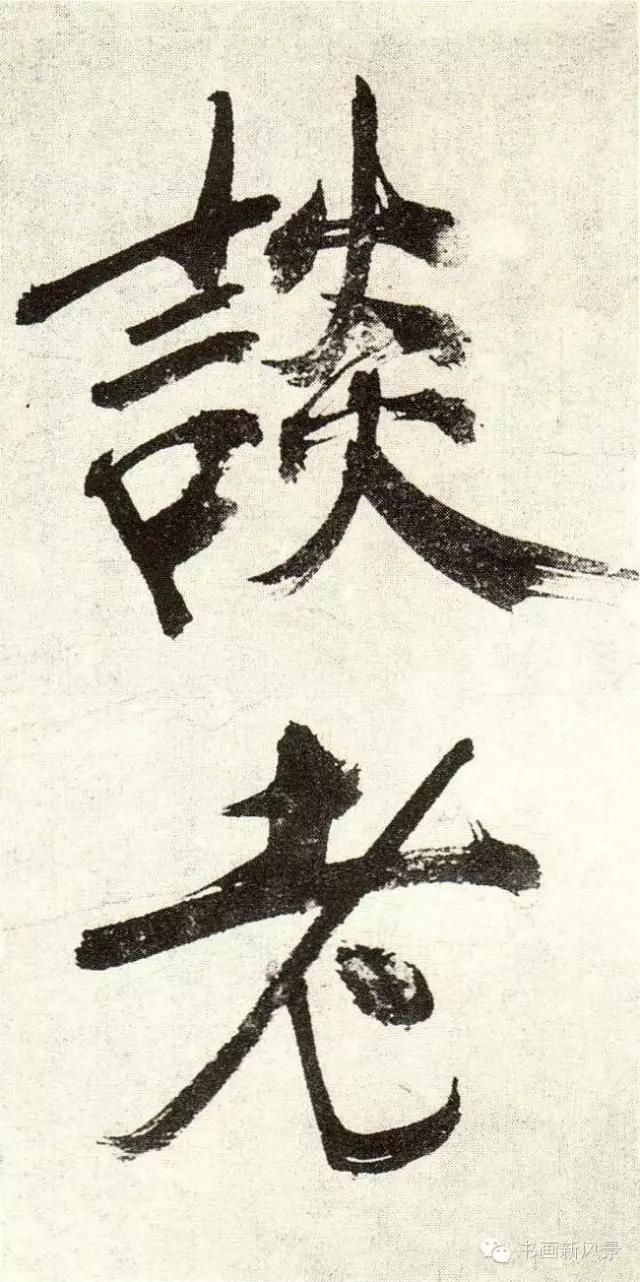 談
老
书画新风景